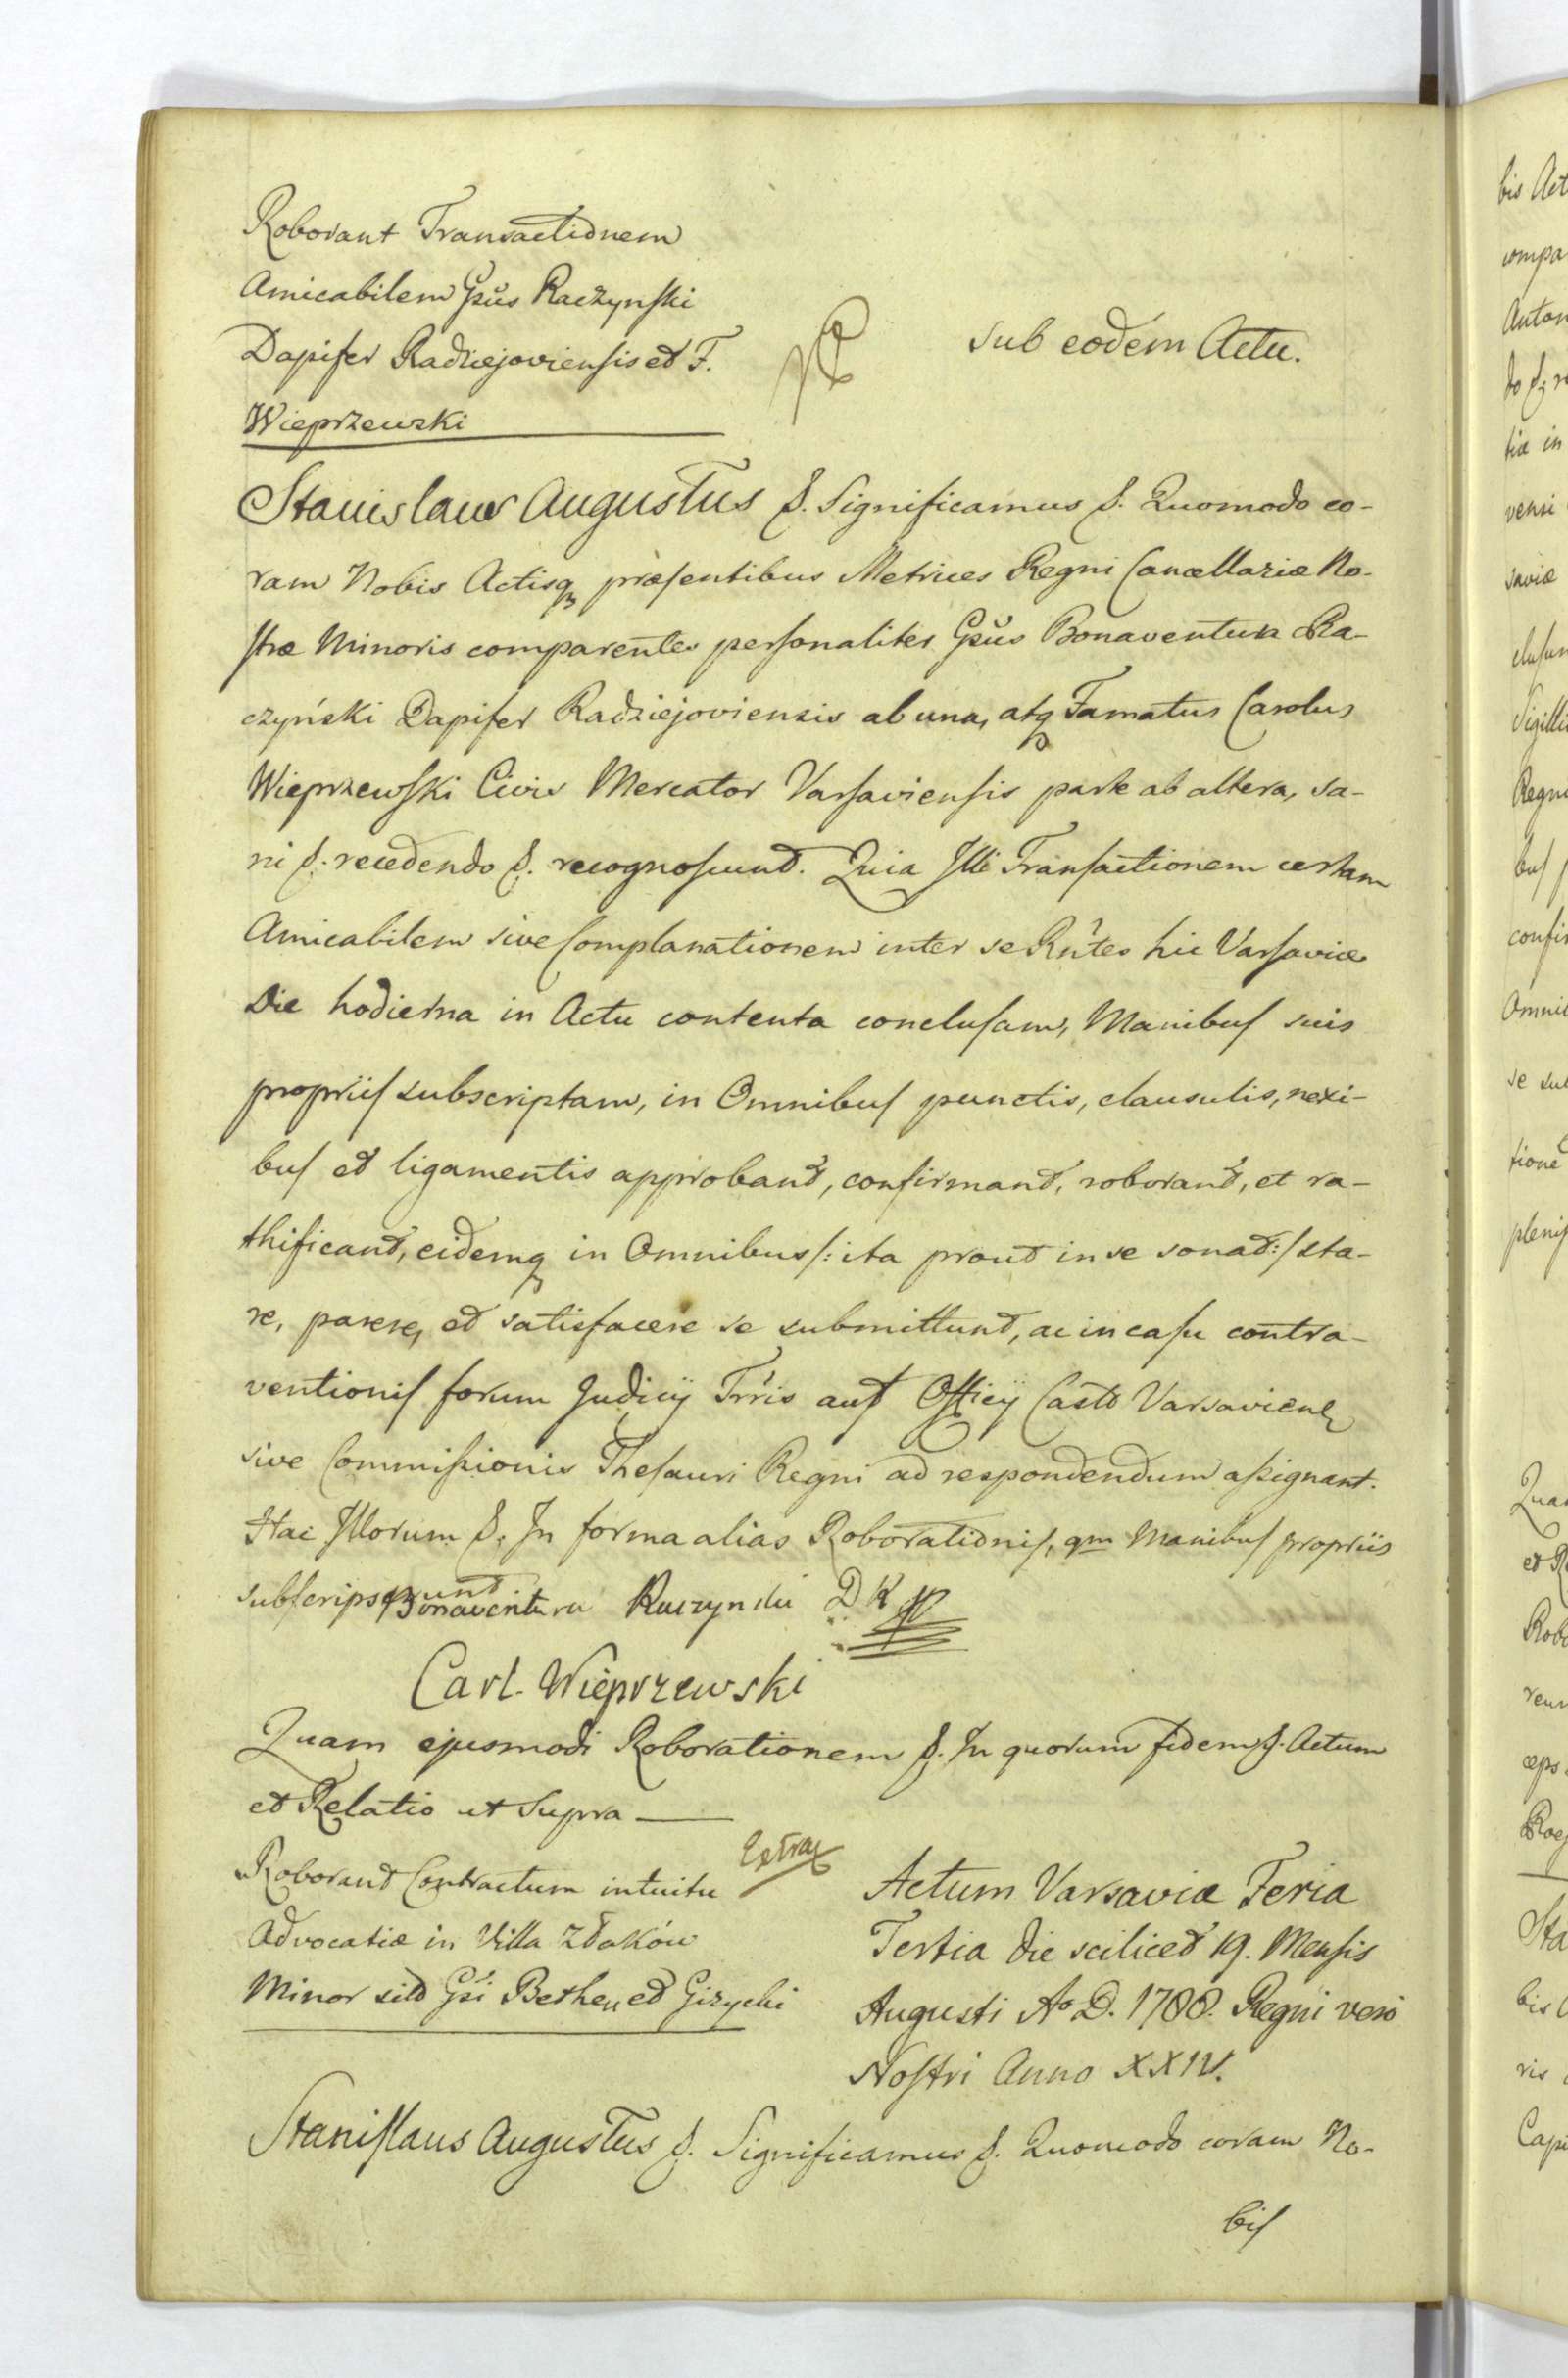 Roborant Transactionem
Amicabilem Gsūs Raczynski
Dapifer Radziejoviensis et F.
Wieprzewski
Sub eodem Actu.
Stanislaus Augustus &. Significamus &. Quomodo co-
ram Nobis Actisq præsentibus Metrices Regni Cancellariæ No-
stræ Minoris comparentes personaliter Gsūs Bonaventura Ra-
czyński Dapifer Radziejoviensis ab una, atq Famatus Carolus
Wieprzewski Civis Mercator Varsaviensis parte ab altera, sa-
ni &. recedendo &. recognoscunt. Quia Illi Transactionem certam
Amicabilem sive Complanationem inter se Rntes hic Varsaviæ
Die hodierna in Actu contenta conclusam, Manibus suis
propriis subscriptam, in Omnibus punctis, clausulis, nexi-
bus et ligamentis approbant, confirmant, roborant, et ra-
thificant, eidemq in Omnibus /: ita prout in se sonat :/ sta-
re, parere, et satisfacere se submittunt, ac in casu contra-
ventionis forum Judicij Trris aut Officij Castr Varsavien
sive Commissionis Thesauri Regni ad respondendum assignant.
Hac Illorum &. In forma alias Roborationis, qm Manibus propriis
subscripserunt Bonaventura Raczynski D R
Carl. Wieprzewski
Quam ejusmodi Roborationem &. In quorum fidem &. Actum
et Relatio ut Supra
Extrax
Roborant Contractum intuitu
Advocatiæ in Villa Zdaków
Minor sito Gsi Bethen et Gizycki
Actum Varsaviæ Feria
Tertia die scilicet 19. Mensis
Augusti Ao D. 1788. Regni vero
Nostri Anno XXIV.
Stanislaus Augustus &. Significamus &. Quomodo coram No-
bis